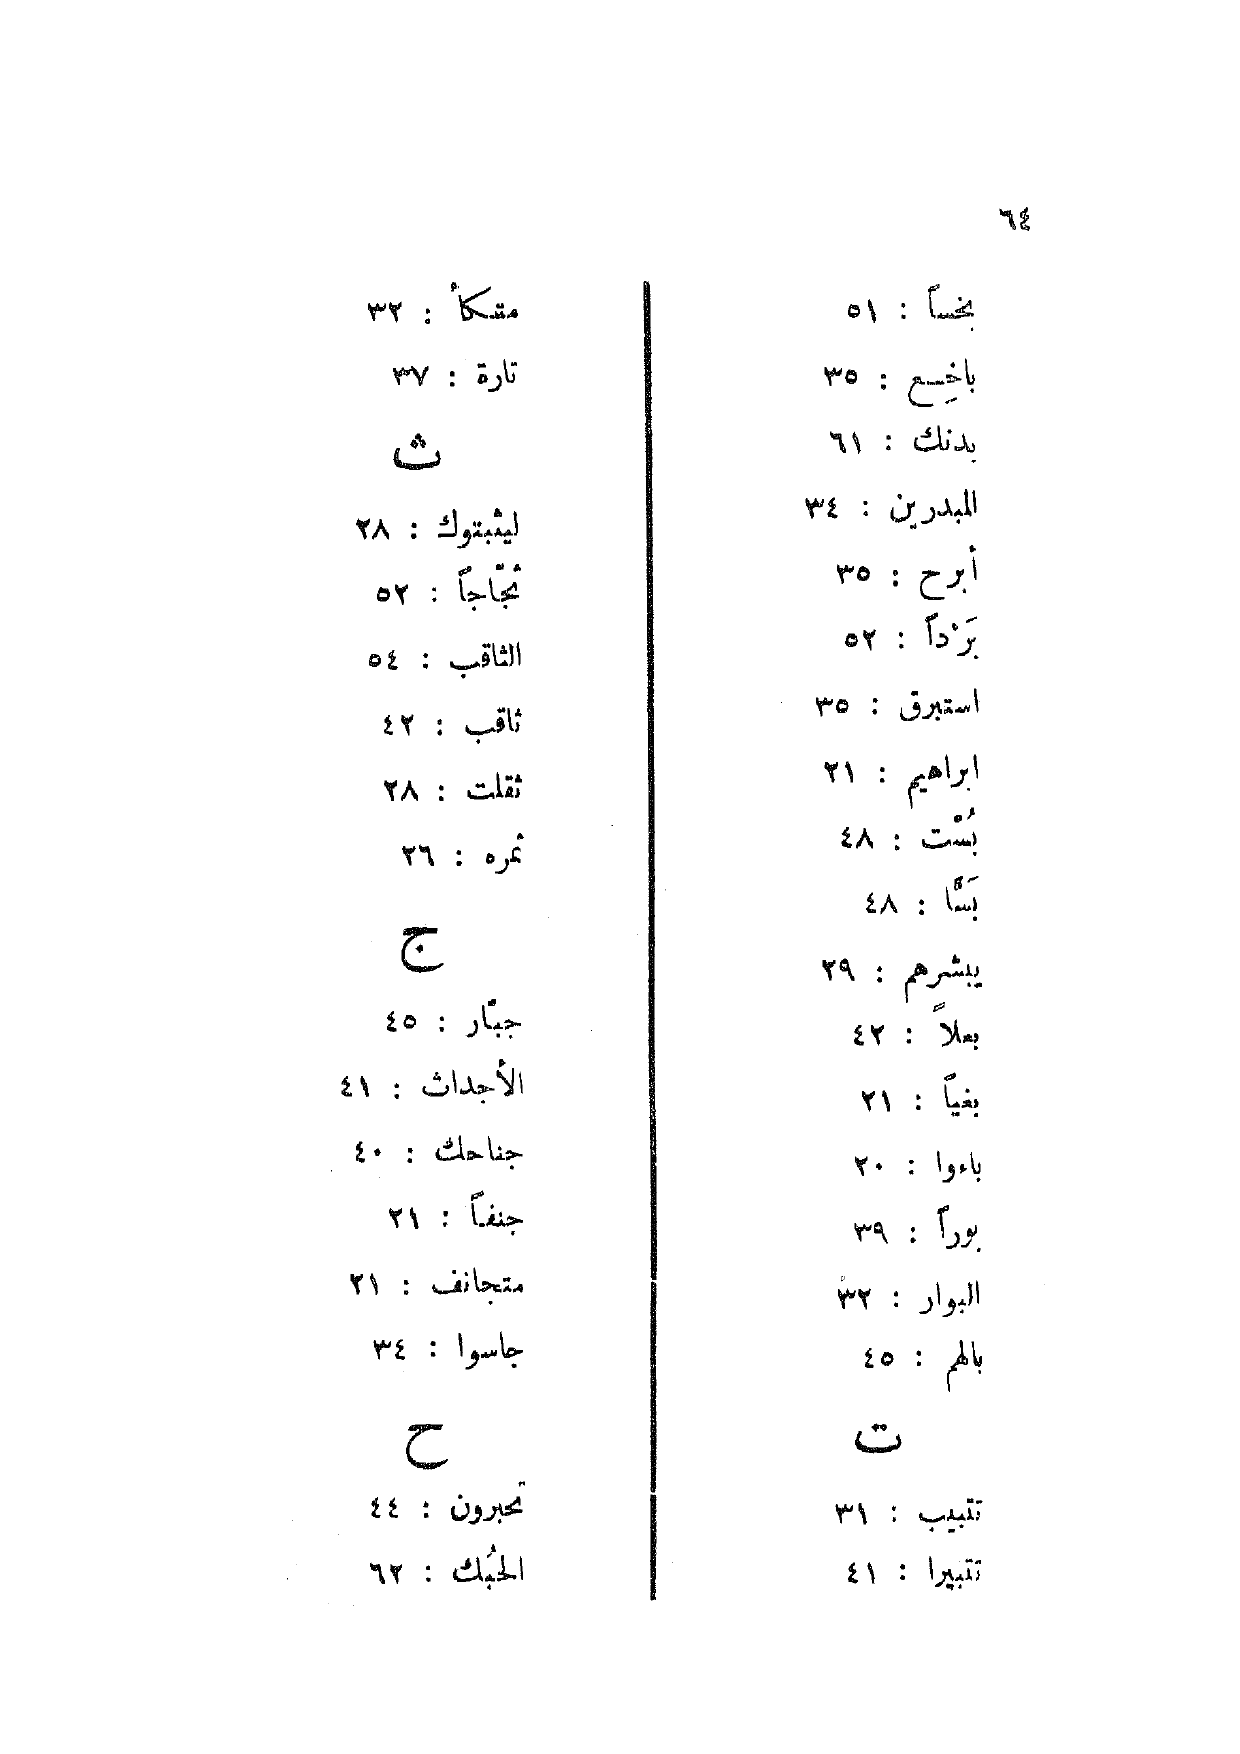 ٦٤
بخساً : ٥١
باخِع : ٣٥
بدنك : ٦١
المبدرين : ٣٤
أبرح : ٣٥
بَرْداً : ٥٢
استبرق : ٣٥
ابراهيم : ٢١
بُسْت : ٤٨
بَسًّا : ٤٨
يبشرهم : ٢٩
بعلاً : ٤٢
بغياً : ٢١
باءوا : ٢٠
بوراً : ٣٩
البوار : ٣٢
بالهم : ٤٥
ت
تتبيب : ٣١
تتبيرا : ٤١
متكأ : ٣٢
تارة : ٣٧
ث
ليثبتوك : ٢٨
ثجّاجاً : ٥٢
الثاقب : ٥٤
ثاقب : ٤٢
ثقلت : ٢٨
ثمره : ٢٦
ج
جبّار : ٤٥
الأجداث : ٤١
جناحك : ٤٠
جنفاً : ٢١
متجانف : ٢١
جاسوا : ٣٤
ح
تحبرون : ٤٤
الحُبك : ٦٢